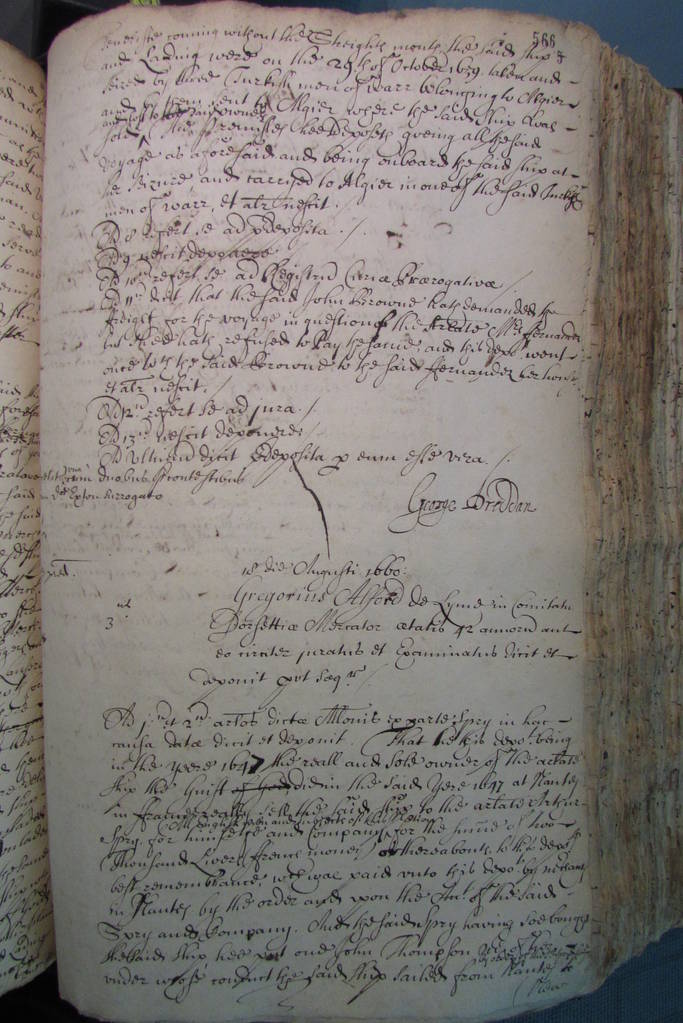 566
coming without the Streights month the said ship
and Lading were on the 29th of October 1659 taken and
seized by three Turkish men of warr belonging to Algier
and by them sent to Algier where the said ship was
sold, this premisses hee deposeth goeing all the said
voyage as aforesaid and being onboard the said ship at
and carryed to Algier in one of the said Turkish
men of warr, et alr nescit.
Ad 8 refert se ad prdeposita
Ad 9 nescit deponere
Ad 10 refert se ad Registru Curiæ Prærogativæ
Ad 11 dicit that the said John Browne hath demanded the
freight for the voyage in question of the arlate Mr Fernandez
but hee hath refused to pay the same and this depot went
once with the said Browne to the said Fernandez
et alr nescit.
Ad 12 refert se ad jura.
Ad 13 nescit deponere
Ad ultimum dicit prdeposita p eum esse vera.
duobus contestibus
Exton Surrogato
George Breddan
18 die Augusti 1660:
Gregorius Alford de Lyme in Comitatu
3us
Dorsettiæ Mercator ætatis 42 annoru aut
eo circiter juratus et Examinatus dicit et
deponit prt sequr
Ad 1m et 2m arlos dictæ Allonis ex parte Spry in hac
causa datæ dicit et deponit. That he this depot being
in the yeere 1647 the reall and sole owner of the arlate
ship the did in the said yeere 1647 at Nantes
in France really sell the said ship to the arlate Arthur
Spry, for himselfe and Company, for the summe of two
thousand Livers ffrench money or thereabouts to this depots
best remembrance, wch was paid unto this depot by
in Nantes by the order and upon the Act of the said
Spry and Company. And the said Spry having soe bought
the said ship hee put one John Thompson
under whose conduct the said ship sailed from Nantes to
New